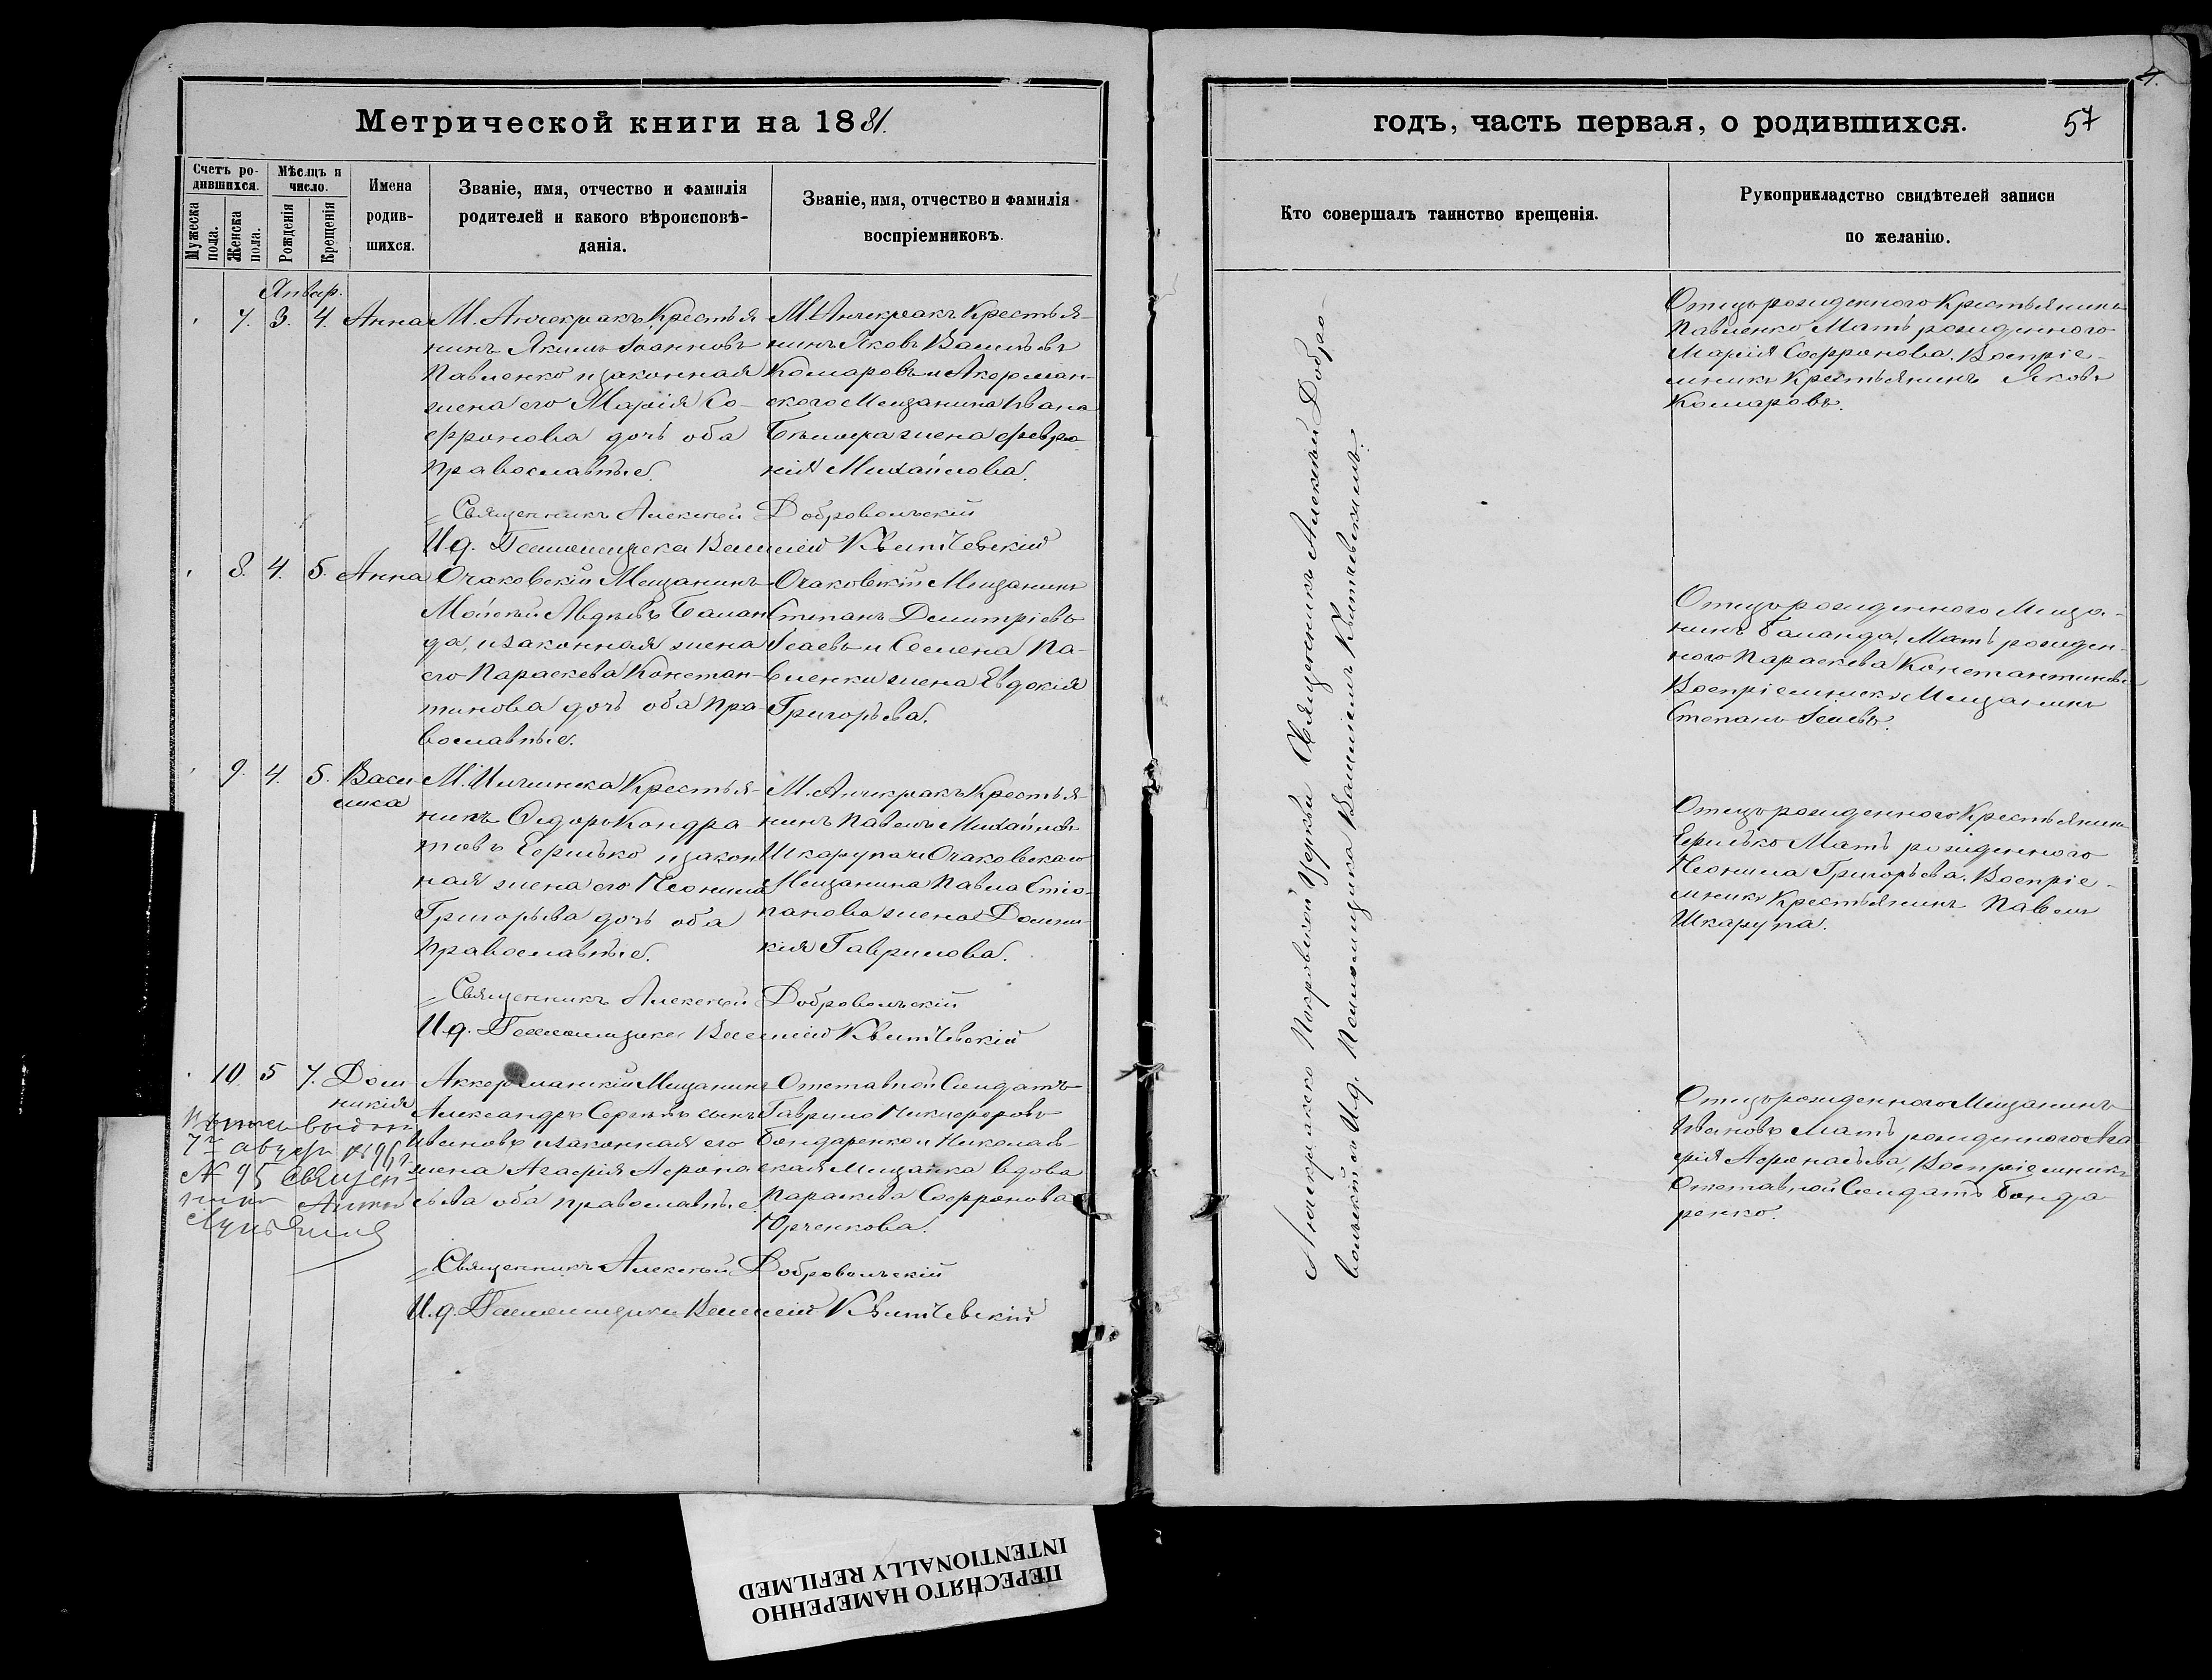 Метрической книги на 1881.
Счетъ ро-
дившихся.
Мужеска пола.
Женска пола.
Мѣсяцъ и
число.
Рожденія
Крещенія
Имена
родив-
шихся.
Званіе, имя, отчество и фамилія
родителей и какого вѣроисповѣ-
данія.
Званіе, имя, отчество и фамилія
воспріемниковъ.
Январ.
7. 3. 4. Анна
М. Анчекракъ Крестья
нинъ Якимъ Іоанновъ
Павленко и законная
жена его Марія Со-
фронова дочь оба
православные.
М. Анчекракъ Крестья-
нинъ Яковъ Васильевъ
Комаровъ и Акерман-
скаго Мещанина Ивана
жена Февро-
нія Михайлова.
Священникъ Алексѣй Добровольскій
И. д. Псаломщика Василій Квитчевскій
8. 4. 5. Анна
Очаковскій Мещанинъ
Мойсей Авдѣевъ Балан
да, и законная жена
его Параскева Констан-
тинова дочь оба пра-
вославные.
Очаковскій Мещанинъ
Степанъ Димитріевъ
Ісаевъ и Семена Па-
вленки жена Евдокія
Григорьева.
9. 4. 5. Васи-
лиса
М. Крестья-
нинъ Сидоръ Кондра-
товъ и закон
ная жена его Неонила
Григорьева дочь оба
православные.
М. Анчекракъ Крестья-
нинъ Павелъ Михайловъ
Шкарупа и Очаковскаго
Мещанина Павла Сте-
панова жена Домни-
кія Гаврилова.
Священникъ Алексѣй Добровольскій
И. д. Псаломщика Василій Квитчевскій
10 5 7. Дом
никія
Аккерманскій Мещанинъ
Александръ Сергѣевъ сынъ
Ивановъ и законная его
жена Агафія Афона
сьева оба православные.
Отставной Солдатъ
Гаврило Никифоровъ
Бондаренко и Николаев-
ская Мещанка вдова
Параскева Софронова
Юрченкова.
7го
№ 95 Священ-
никъ
Священникъ Алексѣй Добровольскій
И. д. Псаломщика Василій Квитчевскій
4.
годъ, часть первая, о родившихся.
57
Кто совершалъ таинство крещенія.
Рукоприкладство свидѣтелей записи
по желанію.
Анчекракско Покровской Церкви Священникъ Алексѣй Добро-
вольскій съ И. д. Псаломщика Василіемъ Квитчевскимъ.
Отецъ рожденного Крестьянинъ
Павленко Мать рожденного
Марія Софронова. Воспріе-
мникъ Крестьянинъ Яковъ
Комаровъ.
Отецъ рожденного Меща-
нинъ Баланда, Мать рожден-
ного Параскева Константинова
Воспріемникъ Мещанинъ
Степанъ Ісаевъ.
Отецъ рожденного Крестьянинъ
Мать рожденного
Неонила Григорьева. Воспріе-
мникъ Крестьянинъ Павелъ
Шкарупа.
Отецъ рожденного Мещанинъ
Ивановъ Мать рожденного Ага
фія Афонасьева, Воспріемникъ
Отставной Солдатъ Бонда
ренко.
ПЕРЕСНЯТО НАМЕРЕННО
INTENTIONALLY REFILMED